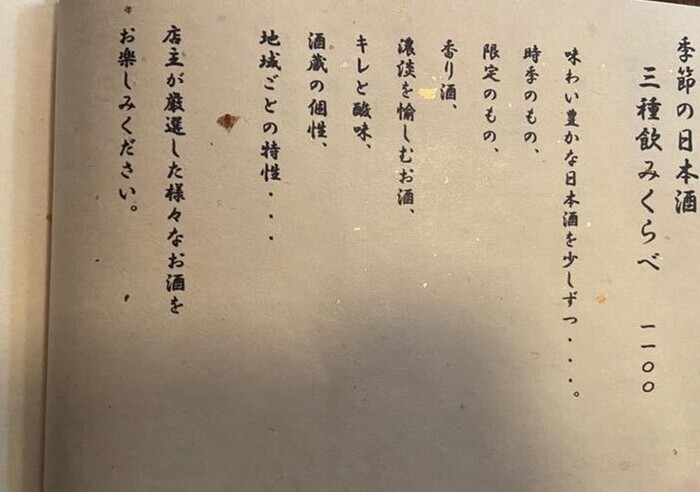 季節の日本酒
三種飲みくらべ 一一〇〇
味わい豊かな日本酒を少しずつ・・・。
時季のもの、
限定のもの、
香り酒、
濃淡を愉しむお酒、
キレと酸味、
酒蔵の個性、
地域ごとの特性・・・
店主が厳選した様々なお酒を
お楽しみください。